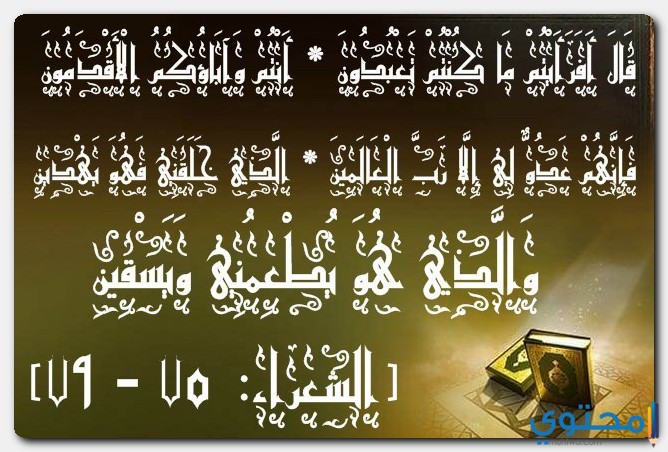 قَالَ أَفَرَأَيْتُمْ مَا كُنْتُمْ تَعْبُدُونَ * أَنْتُمْ وَآبَاؤُكُمُ الْأَقْدَمُونَ
فَإِنَّهُمْ عَدُوٌّ لِي إِلَّا رَبَّ الْعَالَمِينَ * الَّذِي خَلَقَنِي فَهُوَ يَهْدِينِ
وَالَّذِي هُوَ يُطْعِمُنِي وَيَسْقِينِ
[الشعراء: ٧٥ - ٧٩]
محتوي